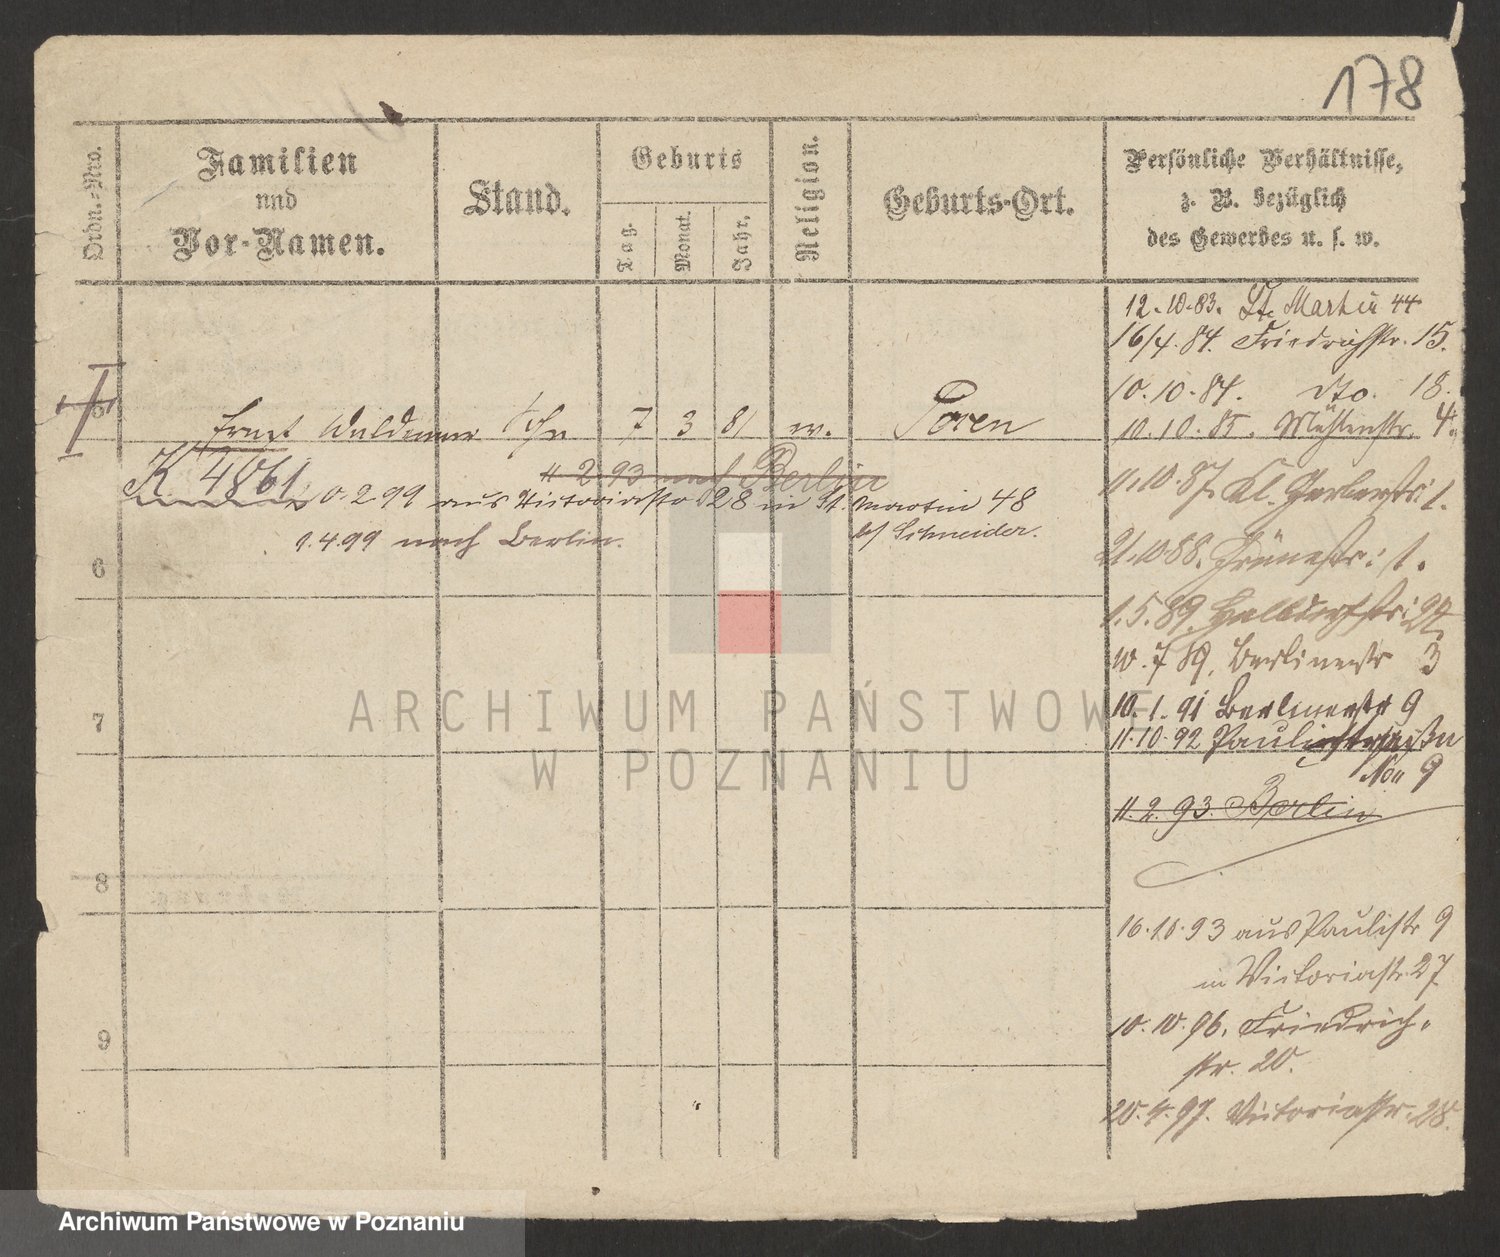 178
Ordn.-Nro.
Familien
und
Vor-Namen.
Stand.
Geburts
Tag.
Monat.
Jahr.
Religion.
Geburts-Ort.
Persönliche Verhältnisse,
z. B. bezüglich
des Gewerbes u. s. w.
12.10.83. St. Martin 44
16/4.84. Friedrichstr. 15.
10.10.84. dto. 18.
5 Ernst Waldemar Sohn 7 3 81 w. Posen
10.10.85. Mühlenstr. 4.
K. 4861
11.2.93 nach Berlin
11.10.87. Kl. Gerberstr: 1.
0.2.99 aus Victoriastr 28 in St. Martin 48
b/ Schneider.
9.4.99 nach Berlin.
21.10.88. Grünestr: 1.
6
1.5.89. Halbdorfstr: 24
10.7.89. Berlinerstr 3
10.1.91 Berlinerstr 9
7
11.10.92 Pauli
No 9
11.2.93. Berlin
8
16.10.93 aus Paulistr 9
in Victoriastr. 27
9
10.10.96. Friedrich-
str. 20.
20.4.97. Victoriastr. 28.
ARCHIWUM PAŃSTWOWE
W POZNANIU
Archiwum Państwowe w Poznaniu